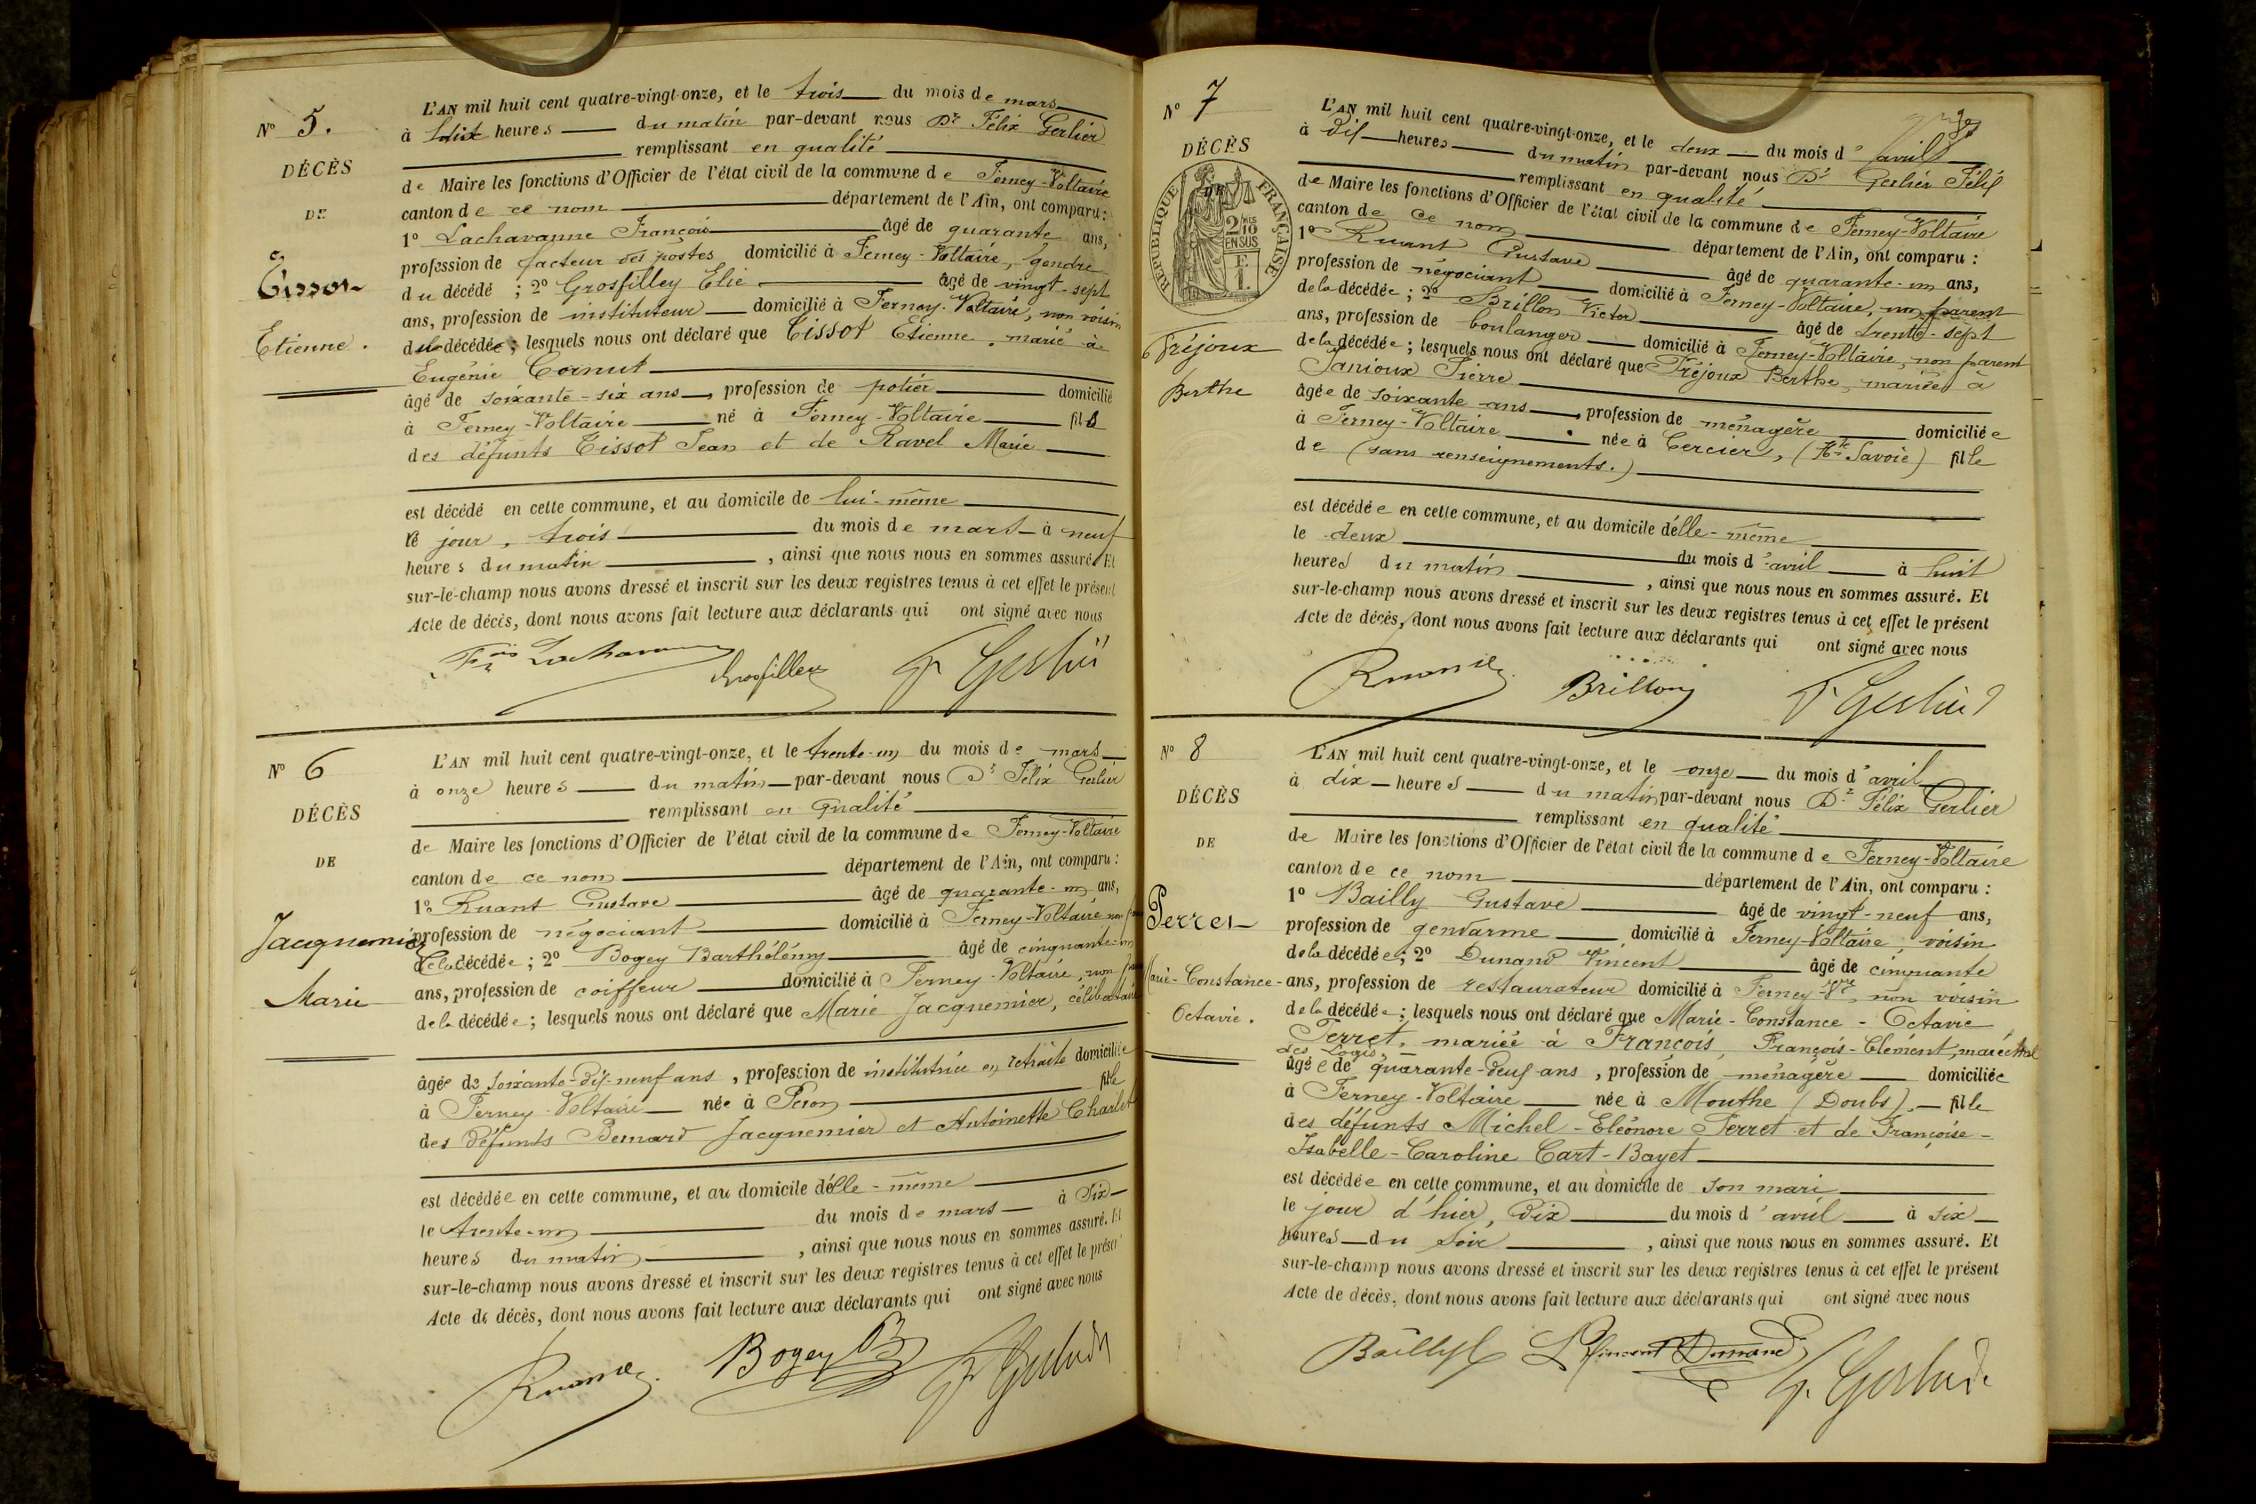 N° 5.
DÉCÈS
DE
Tissot
Etienne.
L'AN mil huit cent quatre-vingt-onze, et le trois du mois de mars
à heures du matin par-devant nous Dr Félix Gerlier
remplissant en qualité
de Maire les fonctions d'Officier de l'état civil de la commune de Ferney-Voltaire
canton de ce nom département de l'Ain, ont comparu :
1° Lachavanne François âgé de quarante ans,
profession de facteur des postes domicilié à Ferney-Voltaire, gendre
du décédé ; 2° Grosfilley Elie âgé de vingt-sept
ans, profession de instituteur domicilié à Ferney-Voltaire, non voisin
du décédé ; lesquels nous ont déclaré que Tissot Etienne, marié à
Eugénie Cornut
âgé de soixante-six ans, profession de potier domicilié
à Ferney-Voltaire né à Ferney-Voltaire fils
des défunts Tissot Jean et de Ravel Marie
est décédé en cette commune, et au domicile de lui-même
le jour, trois du mois de mars à neuf
heures du matin, ainsi que nous nous en sommes assuré. Et
sur-le-champ nous avons dressé et inscrit sur les deux registres tenus à cet effet le présent
Acte de décès, dont nous avons fait lecture aux déclarants qui ont signé avec nous
Fçois Lachavanne Grosfilley F. Gerlier
N° 6
DÉCÈS
DE
Jacquemier
Marie
L'AN mil huit cent quatre-vingt-onze, et le trente-un du mois de mars
à onze heures du matin par-devant nous Dr Félix Gerlier
remplissant en qualité
de Maire les fonctions d'Officier de l'état civil de la commune de Ferney-Voltaire
canton de ce nom département de l'Ain, ont comparu :
1° Ruant Gustave âgé de quarante-un ans,
profession de négociant domicilié à Ferney-Voltaire non
de la décédée ; 2° Bogey Barthélémy âgé de cinquante-un
ans, profession de coiffeur domicilié à Ferney-Voltaire, non
de la décédée ; lesquels nous ont déclaré que Marie Jacquemier, célibataire
âgée de soixante-dix-neuf ans, profession de institutrice en retraite domiciliée
à Ferney-Voltaire née à Péron fille
des défunts Bernard Jacquemier et Antoinette Charlet
est décédée en cette commune, et au domicile d'elle-même
le trente-un du mois de mars à six
heures du matin, ainsi que nous nous en sommes assuré. Et
sur-le-champ nous avons dressé et inscrit sur les deux registres tenus à cet effet le présent
Acte de décès, dont nous avons fait lecture aux déclarants qui ont signé avec nous
Ruant G. Bogey B F. Gerlier
N° 7
DÉCÈS
RÉPUBLIQUE FRANÇAISE
2/10 EN SUS
Tréjoux
Berthe
L'AN mil huit cent quatre-vingt-onze, et le deux du mois d'avril
à dix heures du matin par-devant nous Dr Gerlier Félix
remplissant en qualité
de Maire les fonctions d'Officier de l'état civil de la commune de Ferney-Voltaire
canton de ce nom département de l'Ain, ont comparu :
1° Ruant Gustave âgé de quarante-un ans,
profession de négociant domicilié à Ferney-Voltaire, non parent
de la décédée ; 2° Brillon Victor âgé de trente-sept
ans, profession de boulanger domicilié à Ferney-Voltaire, non parent
de la décédée ; lesquels nous ont déclaré que Tréjoux Berthe, mariée à
Janioux Pierre
âgée de soixante ans, profession de ménagère domiciliée
à Ferney-Voltaire née à Cercier, (Hte Savoie) fille
de (sans renseignements.)
est décédée en cette commune, et au domicile d'elle-même
le deux du mois d'avril à huit
heures du matin, ainsi que nous nous en sommes assuré. Et
sur-le-champ nous avons dressé et inscrit sur les deux registres tenus à cet effet le présent
Acte de décès, dont nous avons fait lecture aux déclarants qui ont signé avec nous
Ruant G. Brillon F. Gerlier
N° 8
DÉCÈS
DE
Perret
Marie-Constance-
Octavie.
L'AN mil huit cent quatre-vingt-onze, et le onze du mois d'avril
à dix heures du matin par-devant nous Dr Félix Gerlier
remplissant en qualité
de Maire les fonctions d'Officier de l'état civil de la commune de Ferney-Voltaire
canton de ce nom département de l'Ain, ont comparu :
1° Bailly Gustave âgé de vingt-neuf ans,
profession de gendarme domicilié à Ferney-Voltaire, voisin
de la décédée ; 2° Dunand Vincent âgé de cinquante
ans, profession de restaurateur domicilié à Ferney-Vre, non voisin
de la décédée ; lesquels nous ont déclaré que Marie-Constance-Octavie
Perret, mariée à François, François-Clément, maréchal
des Logis,
âgée de quarante-deux ans, profession de ménagère domiciliée
à Ferney-Voltaire née à Mouthe (Doubs), fille
des défunts Michel-Eléonore Perret et de Françoise-
Isabelle-Caroline Cart-Bayet
est décédée en cette commune, et au domicile de son mari
le jour d'hier, dix du mois d'avril à six
heures du soir, ainsi que nous nous en sommes assuré. Et
sur-le-champ nous avons dressé et inscrit sur les deux registres tenus à cet effet le présent
Acte de décès, dont nous avons fait lecture aux déclarants qui ont signé avec nous
Bailly G Vincent Dunand F. Gerlier